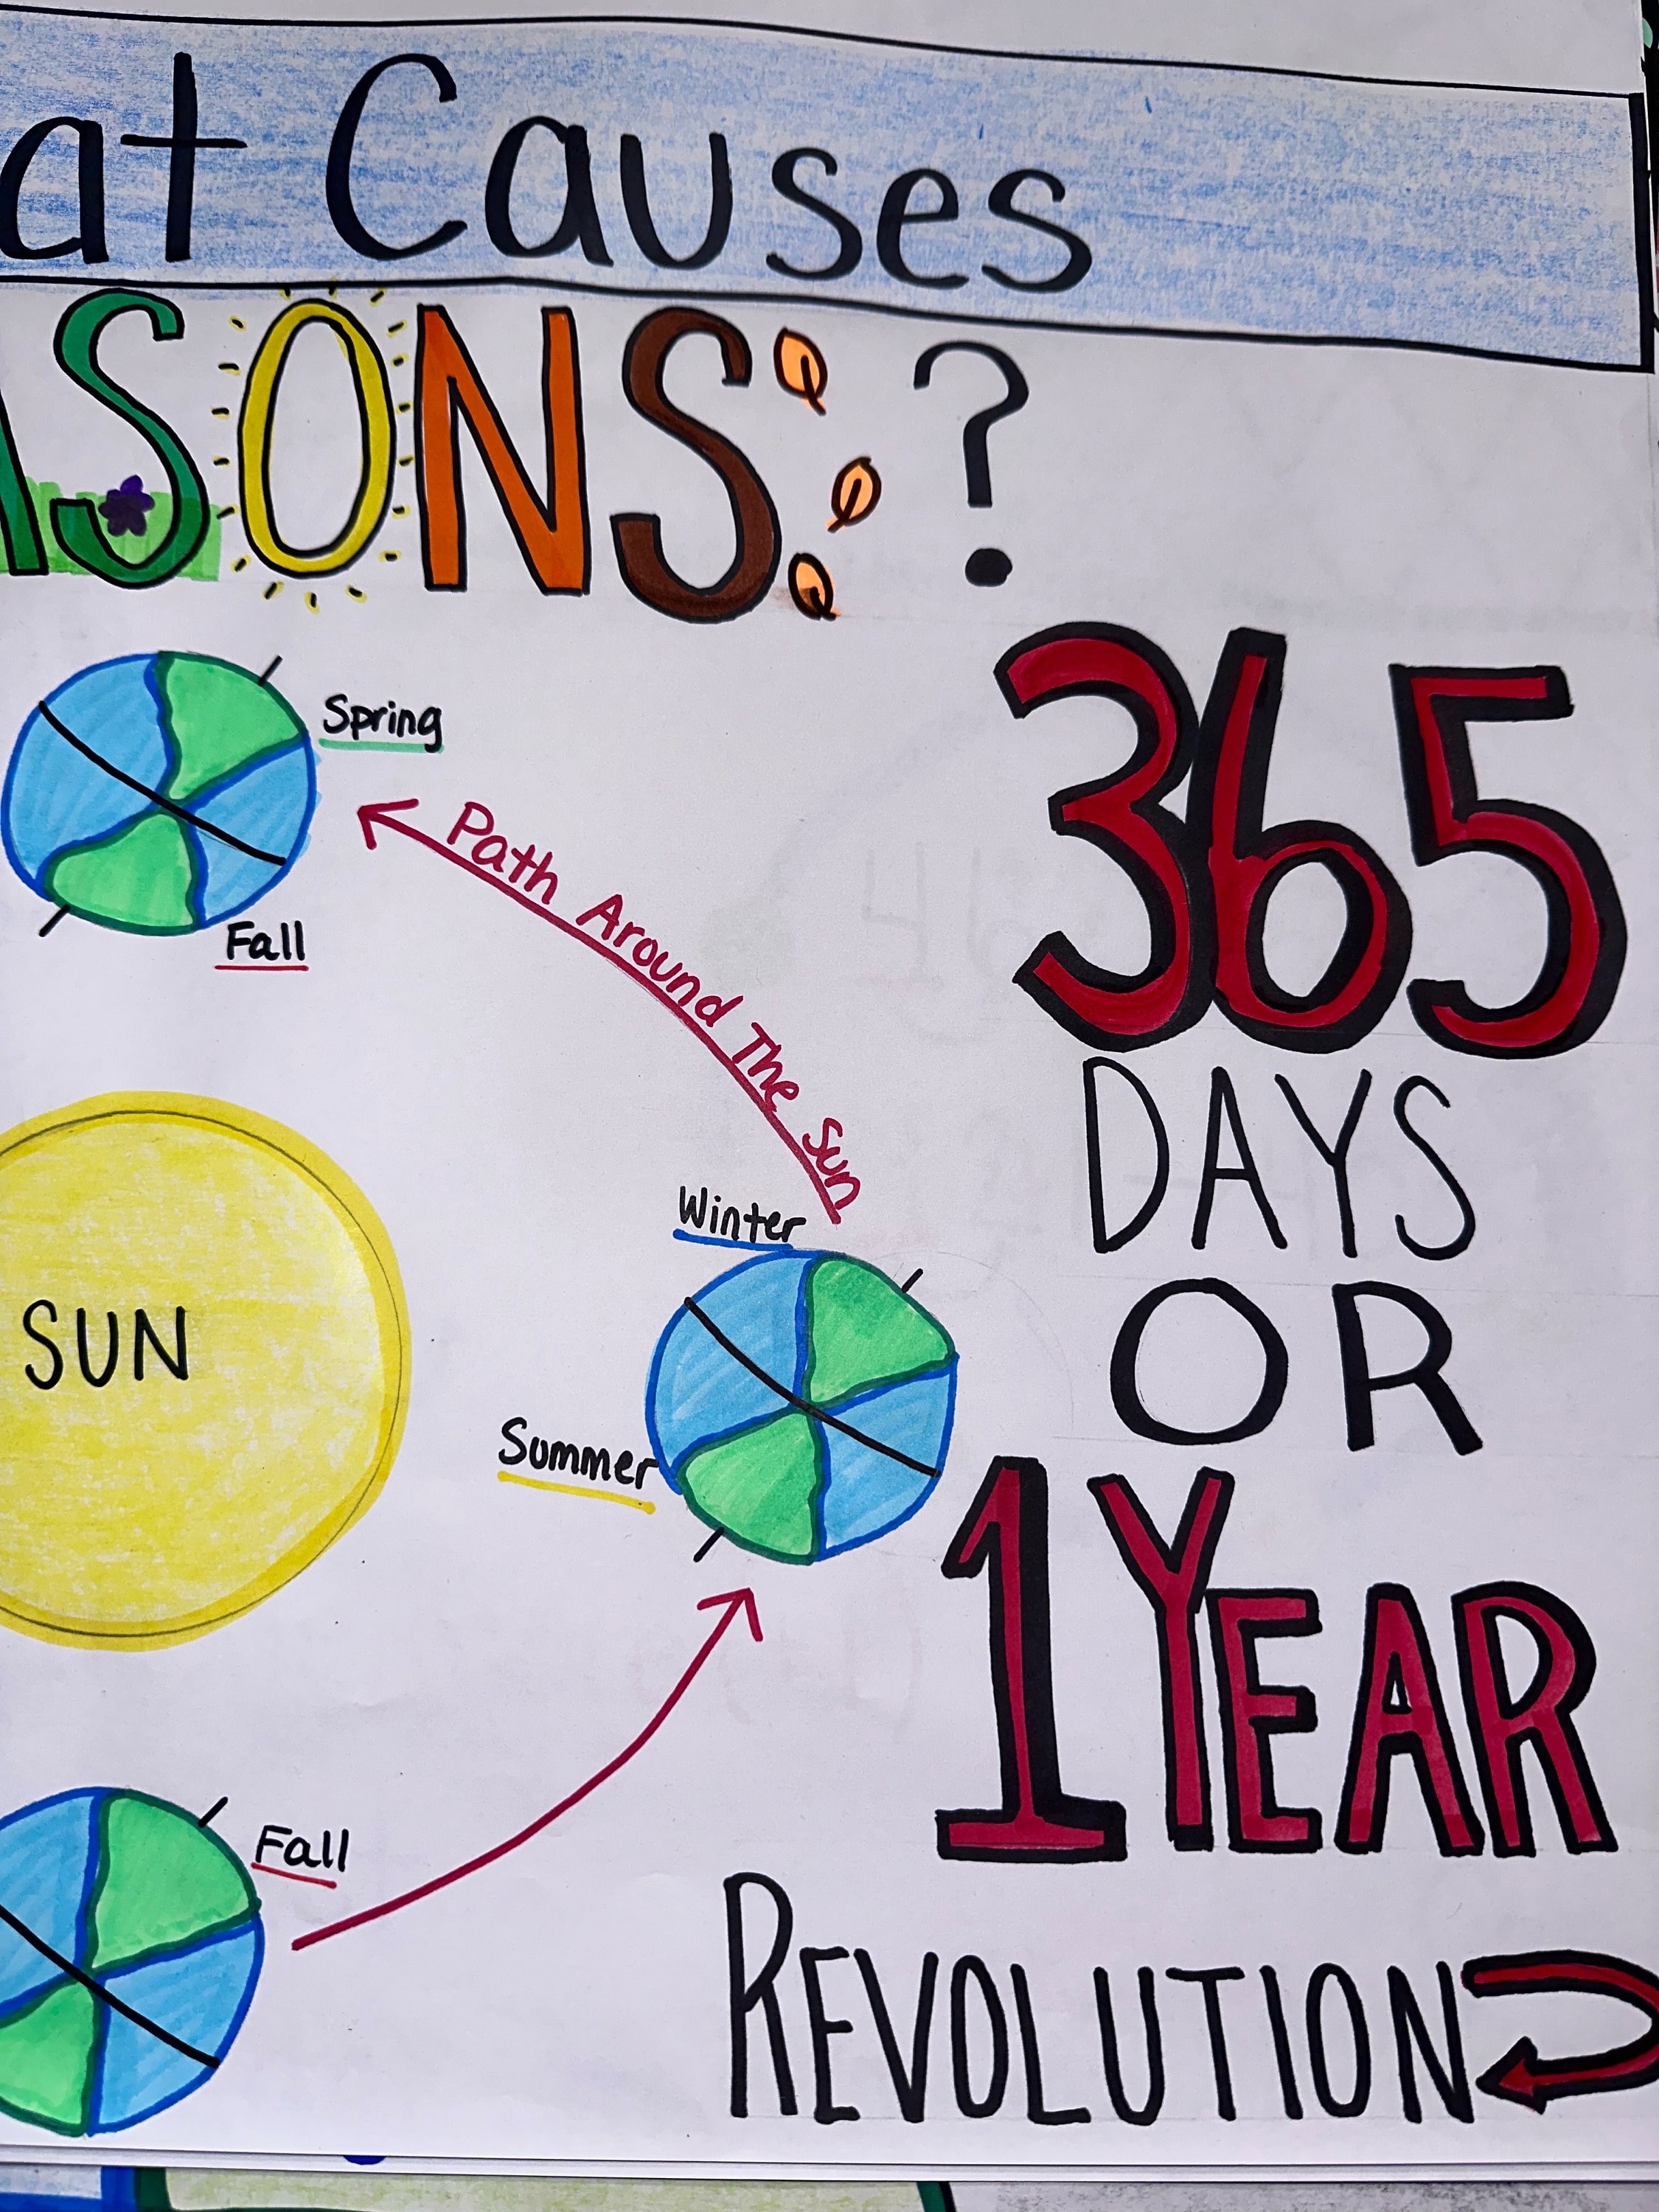 at Causes
SONS?
365
DAYS
OR
1 YEAR
REVOLUTION
Spring
Fall
Path Around The Sun
Winter
Summer
SUN
Fall